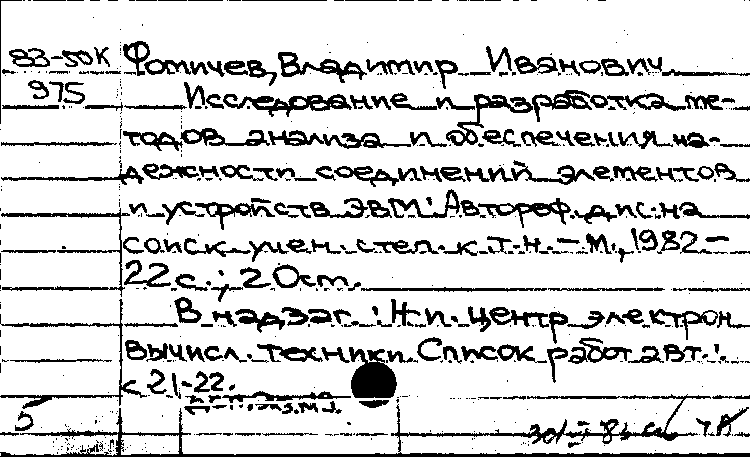 83-50К Фомичев, Владимир Иванович
975 Исследование и разработка ме-
тодов анализа и обеспечения на-
дежности соединений элементов
и устройств ЭВМ: Автореф. дис. на
соиск. учен. степ. к.т.н. – М., 1982 –
22 с.; 20 см.
В надзаг.: Н.-и. центр электрон
вычисл. техники. Список работ авт.:
с. 21-22.
5